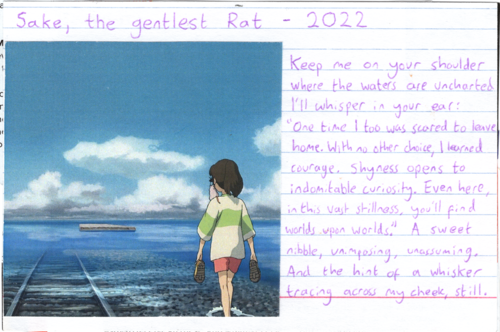 Sake, the gentlest Rat - 2022
Keep me on your shoulder
where the waters are uncharted
I'll whisper in your ear:
"One time I too was scared to leave
home. With no other choice, I learned
courage. Shyness opens to
indomitable curiosity. Even here,
in this vast stillness, you'll find
worlds upon worlds." A sweet
nibble, unimposing, unassuming.
And the hint of a whisker
tracing across my cheek, still.